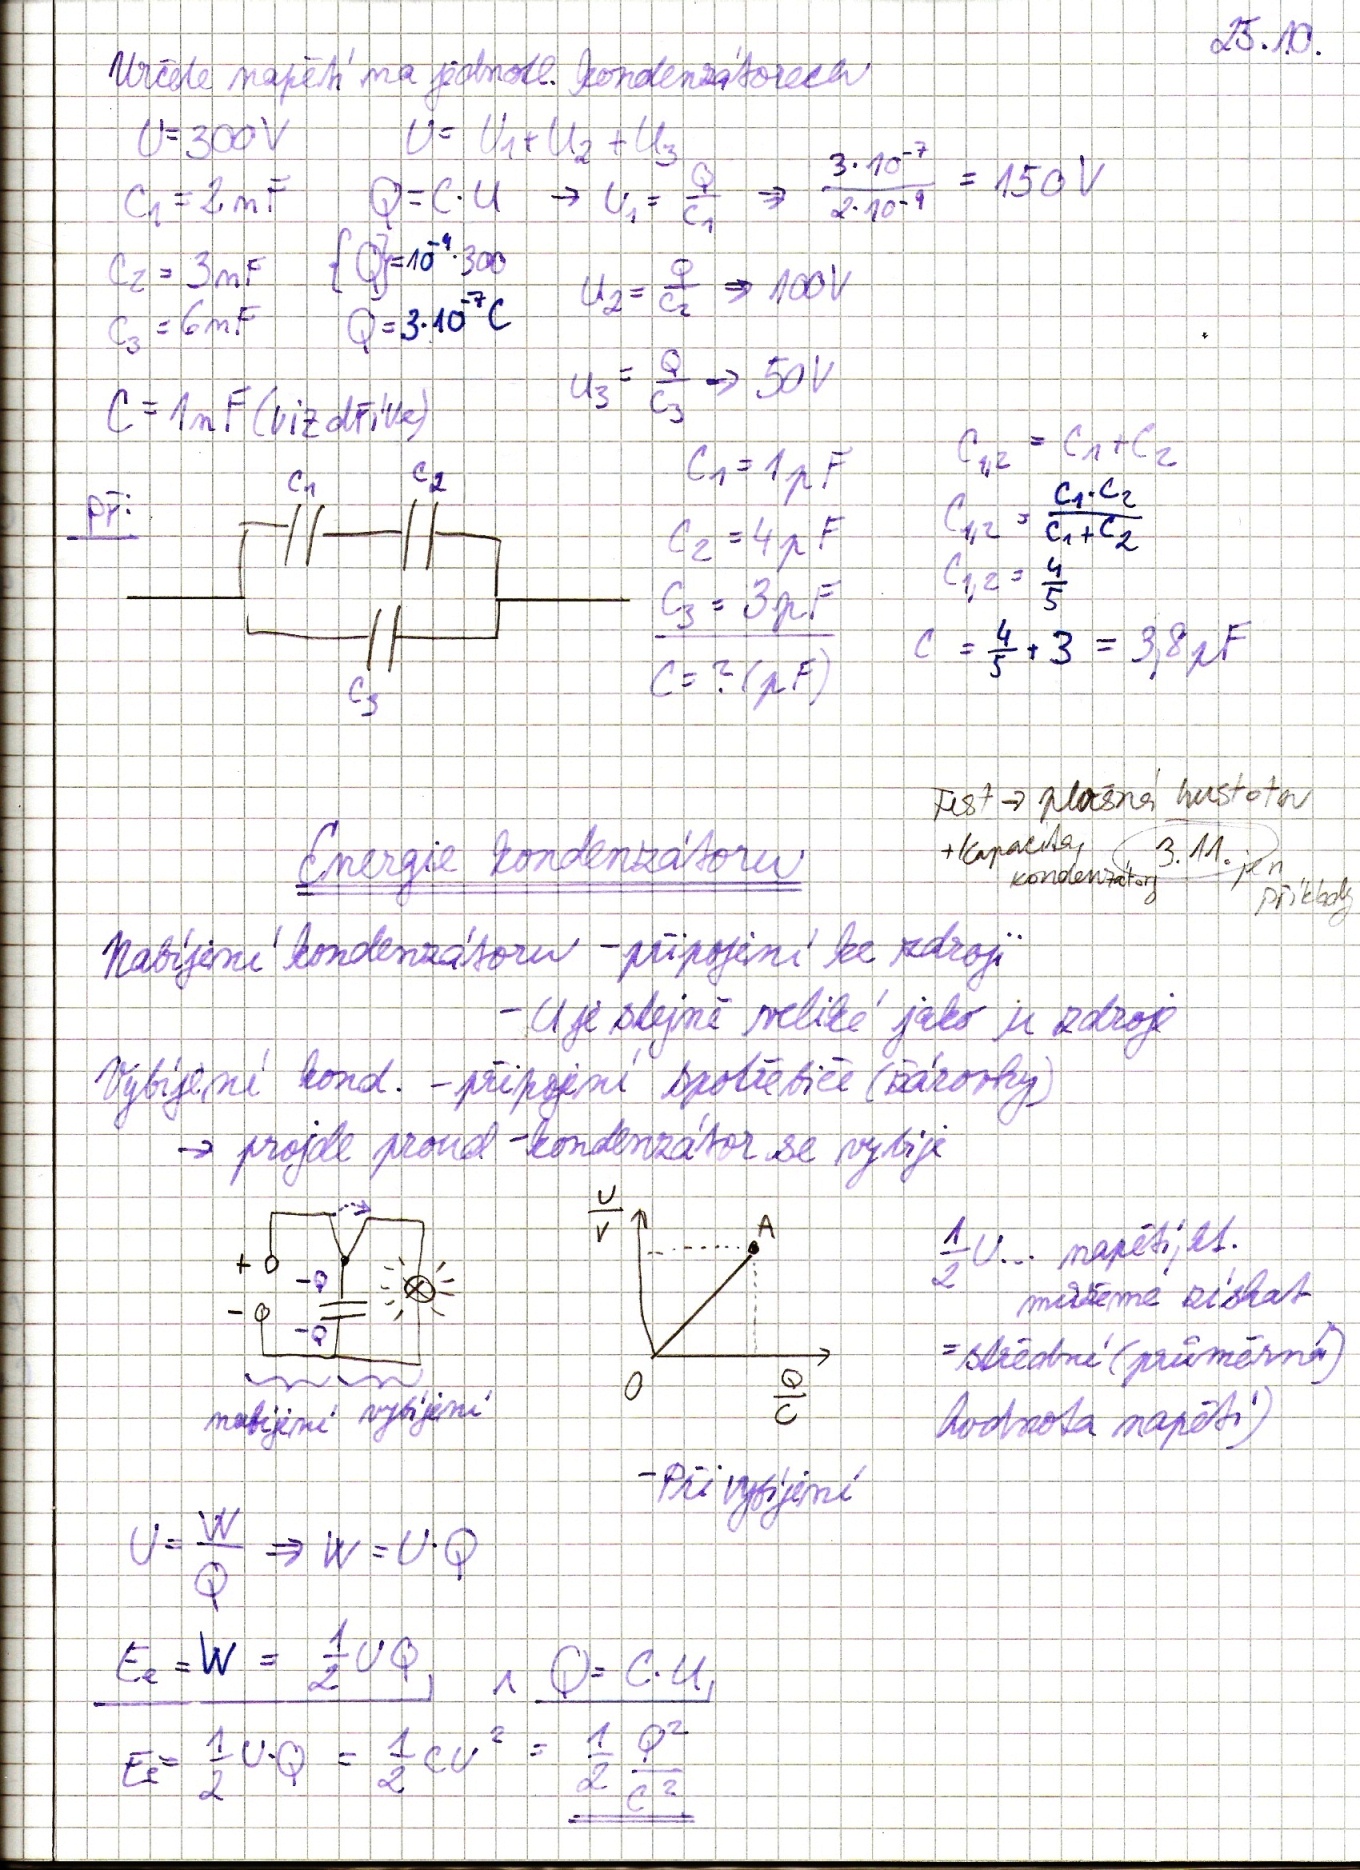 25.10.
Určete napětí na jednotl. kondenzátorech
U=300V U= U₁+U₂+U₃
C₁=2nF Q=C·U → U₁= Q/C₁ ⇒ 3·10⁻⁷/2·10⁻⁹ = 150V
C₂=3nF {Q}=10⁻⁹·300 U₂= Q/C₂ ⇒ 100V
C₃=6nF Q=3·10⁻⁷C
U₃= Q/C₃ → 50V
C=1nF (viz dříve)
Př:
C₁ C₂
C₃
C₁=1pF
C₂=4pF
C₃=3pF
C=?(pF)
C₁,₂ = C₁+C₂
C₁,₂ = C₁·C₂/C₁+C₂
C₁,₂= 4/5
C = 4/5 + 3 = 3,8pF
Test → plošná hustota
+kapacita, 3.11. jen
kondenzátory příklady
Energie kondenzátoru
Nabíjení kondenzátoru - připojení ke zdroji
- U je stejně veliké jako u zdroje
Vybíjení kond. - připojení spotřebiče (žárovky)
→ projde proud - kondenzátor se vybije
+ -Q
- -Q
nabíjení vybíjení
U/V A
0 Q/C
- Při vybíjení
1/2 U... napětí, kt.
můžeme získat
= střední (průměrná)
hodnota napětí)
U= W/Q ⇒ W=U·Q
Eₑ=W = 1/2 UQ, ∧ Q= C·U,
Eₑ= 1/2 U·Q = 1/2 CU² = 1/2 Q²/C²